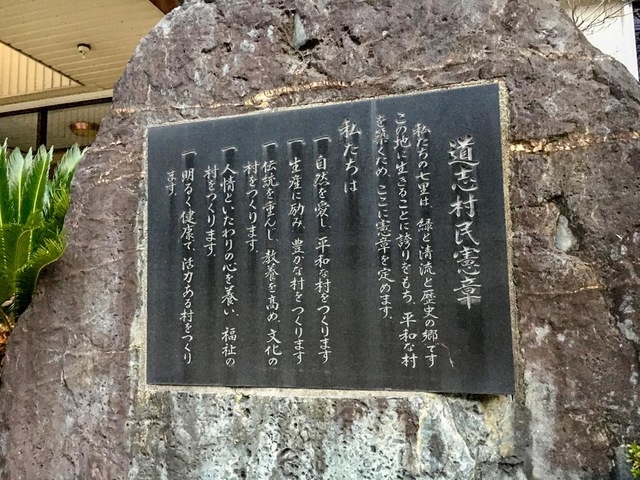 道志村民憲章
私たちの七里は、緑と清流と歴史の郷です
この地に生きることに誇りをもち、平和な村
を築くため、ここに憲章を定めます。
私たちは
一 自然を愛し、平和な村をつくります
一 生産に励み、豊かな村をつくります
一 伝統を重んじ、教養を高め、文化の
村をつくります。
一 人情といたわりの心を養い、福祉の
村をつくります。
一 明るく健康で、活力ある村をつくり
ます。